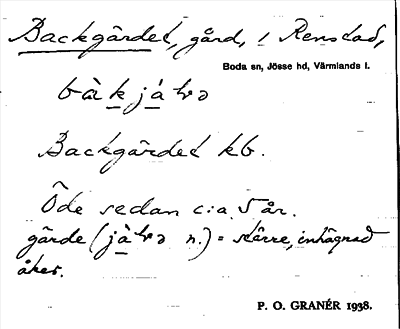 Backgärdet, gård, i Renstad,
Boda sn, Jösse hd, Värmlands l.
Backgärdet kb.
Öde sedan c:a 5 år.
gärde ( n.) = större, inhägnad
åker.
P. O. GRANÉR 1938.